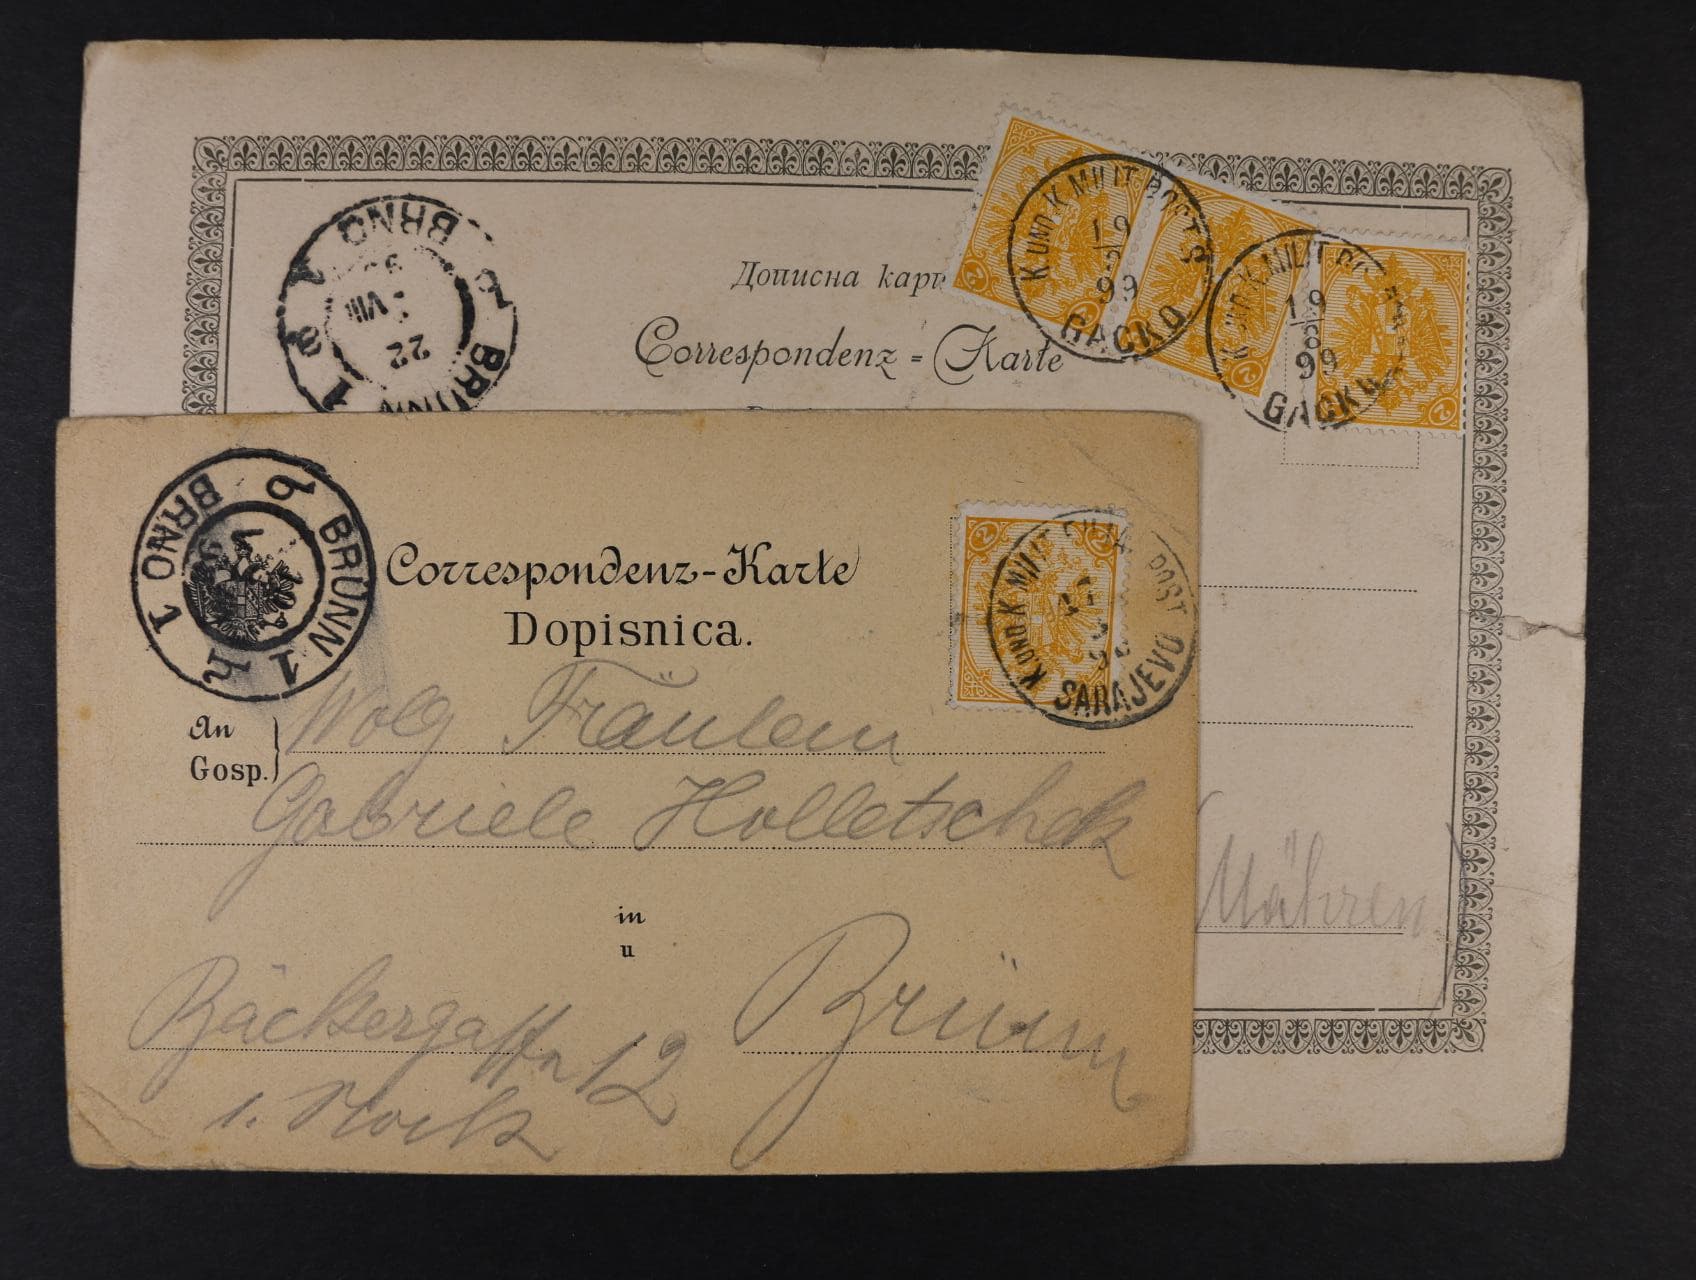 Дописна
Correspondenz=Karte
K. UND K. MILIT. POST S
19
99
GACKO
K. UND K. MILIT. PO
19
8
99
GACKO
2
2
2
BRNO
BRÜNN
22
VIII
1
Mähren
Correspondenz-Karte
Dopisnica.
BRÜNN 1
BRNO 1
2
2
2
K. UND K. MILIT. POST
SARAJEVO
An
Gosp.
Fräulein
Gabriele Holletschek
in
u
Bäckergasse 12
Brünn
1. Stock